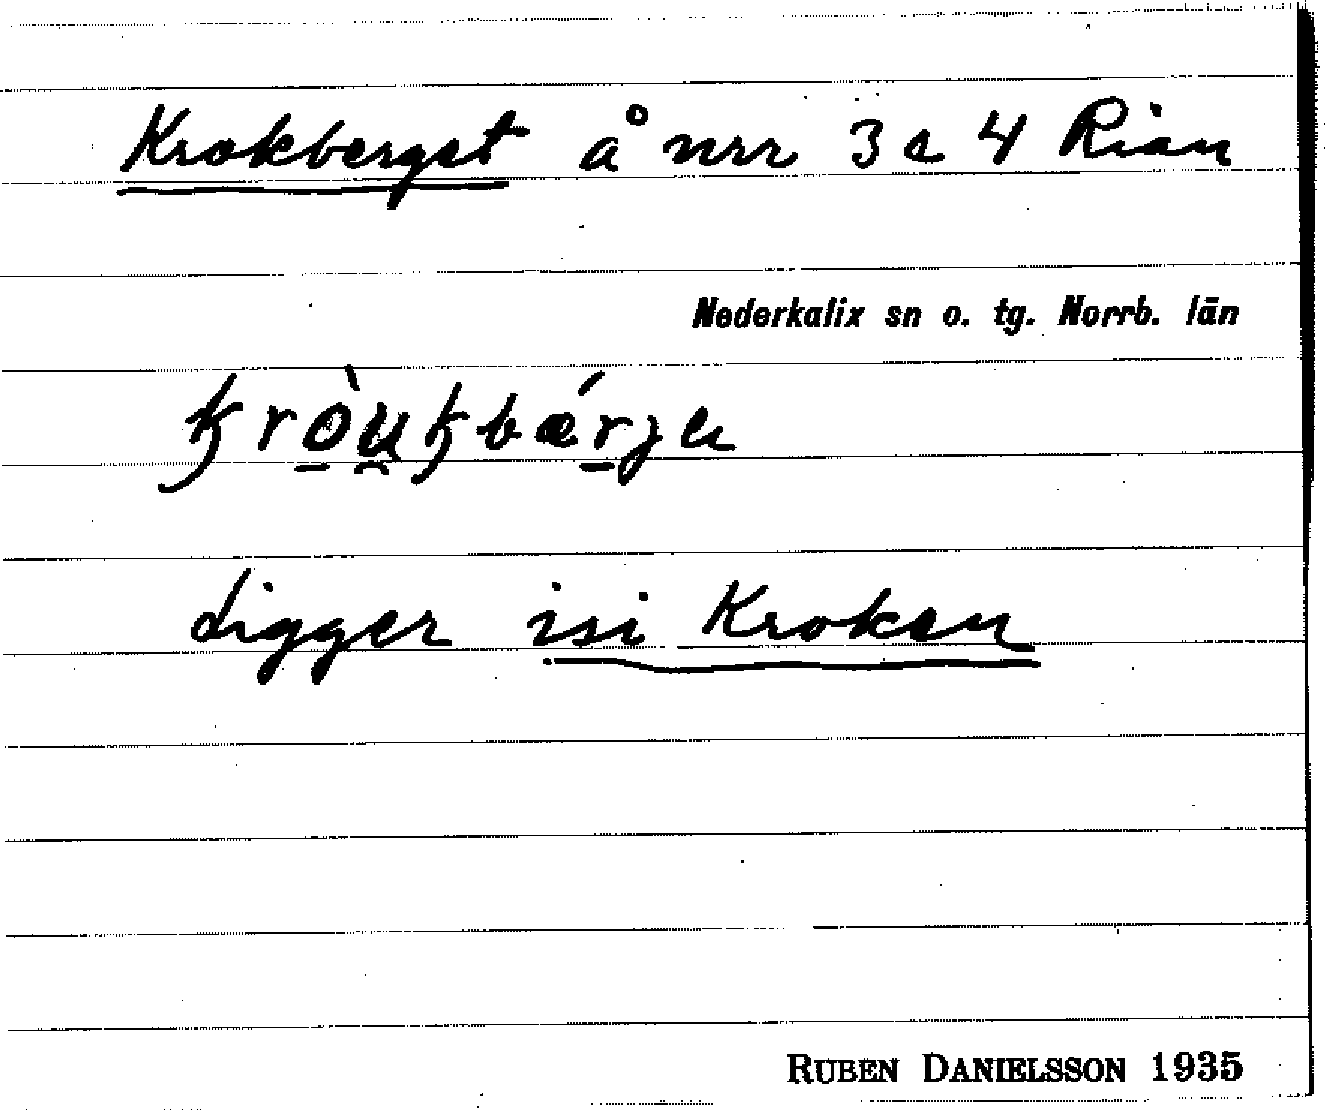 Krokberget å nrr 3 o 4 Rian
Nederkalix sn o. tg. Norrb. län
Ligger isi Kroken
RUBEN DANIELSSON 1935